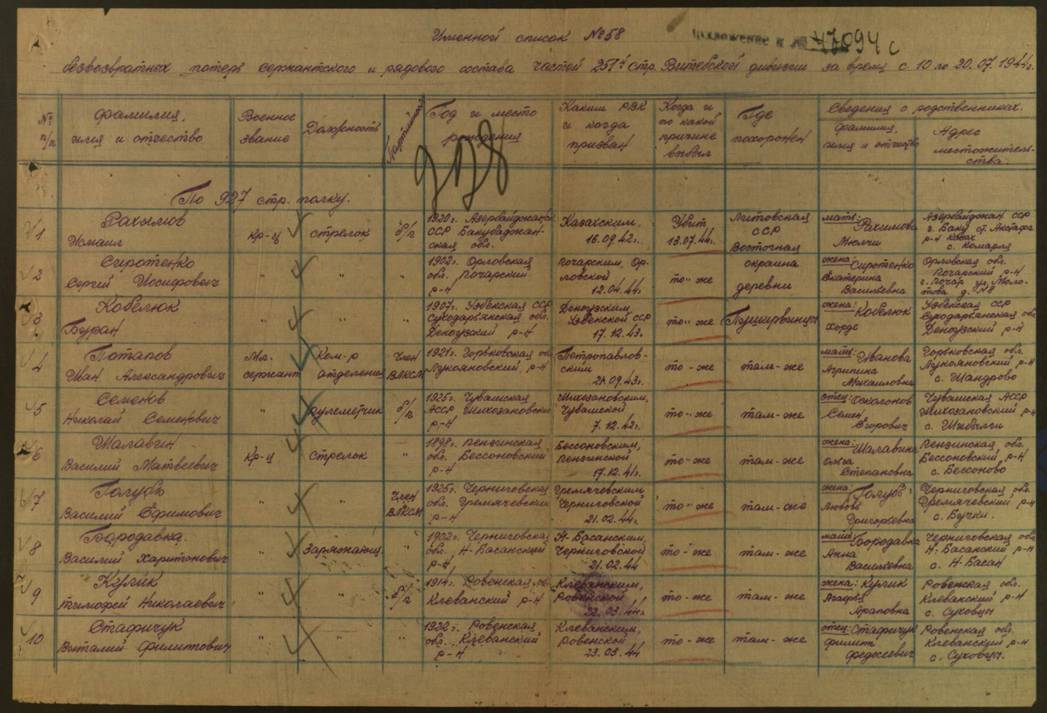 Именной список №58
Приложение к № 47094 с
безвозвратных потерь сержантского и рядового состава частей 251й Стр. Витебской дивизии за время с 10 по 20.07.1944г.
№ п/п
Фамилия, имя и отчество
Военное звание
Должность
Партийн.
Год и место рождения
Каким РВК и когда призван
Когда и по какой причине выбыл
Где похоронен
Сведения о родственниках.
Фамилия, имя и отчество
Адрес местожительства.
По 927 стр. полку.
1 Рахымов Исмаил
Кр-ц
стрелок
б/п
1920г. Азербайджанск. ССР
Казахским, 16.09.42г.
Убит 13.07.44г.
Литовская ССР Восточная
мать: Рахимова
Азербайджан ССР г. Баку
2 Сиротенко Сергей Иосифович
"
"
"
1902г. Орловская обл. Почарский р-н
Почарским, Орловской 12.04.44
то-же
окраина деревни
жена: Сиротенко Екатерина Васильевна
Орловская обл. Почарский р-н г. Почар
3 Кобелюк Буран
"
"
"
1907г. Узбекская ССР Сухо­дарьянская обл. Деноузский р-н
Деноузским, Узбекской ССР 17.12.43г.
то-же
жена: Кобелюк Хорде
Узбекская ССР Суходарьянская обл. Деноузский р-н
4 Потапов Иван Александрович
Мл. сержант
Ком-р отделения
Член ВЛКСМ
1921г. Горьковская обл. Лукояновский, р-н
Петропавловским 21.09.43г.
то-же
там-же
мать: Иванова Агрипина Михайловна
Горьковская обл. Лукояновский р-н с. Шандрово
5 Семенов Николай Семенович
"
пулеметчик
б/п
1925г. Чувашская АССР Шихозановский
Шихозановским, Чувашской 7.12.42г.
то-же
там-же
отец: Соколонов Семен Егорович
Чувашская АССР Шихозановский р-н
6 Шалавин Василий Матвеевич
кр-ц
стрелок
"
1898г. Пензинская обл. Бессоновский р-н
Бессоновским, Пензинской 17.12.41г.
то-же
там-же
жена: Шалавина Ольга Степановна
Пензинская обл. Бессоновский р-н с. Бессоново
7 Голубь Василий Ефимович
"
"
Член ВЛКСМ
1925г. Черниговская обл. Гремячевский р-н
Гремячевским Черниговской 21.02.44г.
то-же
там-же
жена: Голубь Любовь Григорьевна
Черниговская обл. Гремячевский р-н с. Бучки.
8 Бородавка Василий Харитонович
"
Заряжающ.
"
1902г. Черниговская обл. Н-Басанский р-н
Н-Басанским, Черниговской 21.02.44
то-же
там-же
мать: Бородавка Анна Васильевна
Черниговская обл. Н-Басанский р-н с. Н-Басан
9 Кулик Тимофей Николаевич
"
"
б/п
1914г. Ровенская об. Клеванский р-н
Клеванским, Ровенской 22.03.44г.
то-же
там-же
жена: Кулик Агафья
Ровенская обл. Клеванский р-н с. Суховцы
10 Стафичук Виталий Филиппович
"
"
"
Ровенская обл. Клеванский р-н
Клеванским, Ровенской 23.03.44
то-же
там-же
отец: Стафичук Филипп Федосеевич
Ровенская обл. Клеванский р-н с. Суховцы.